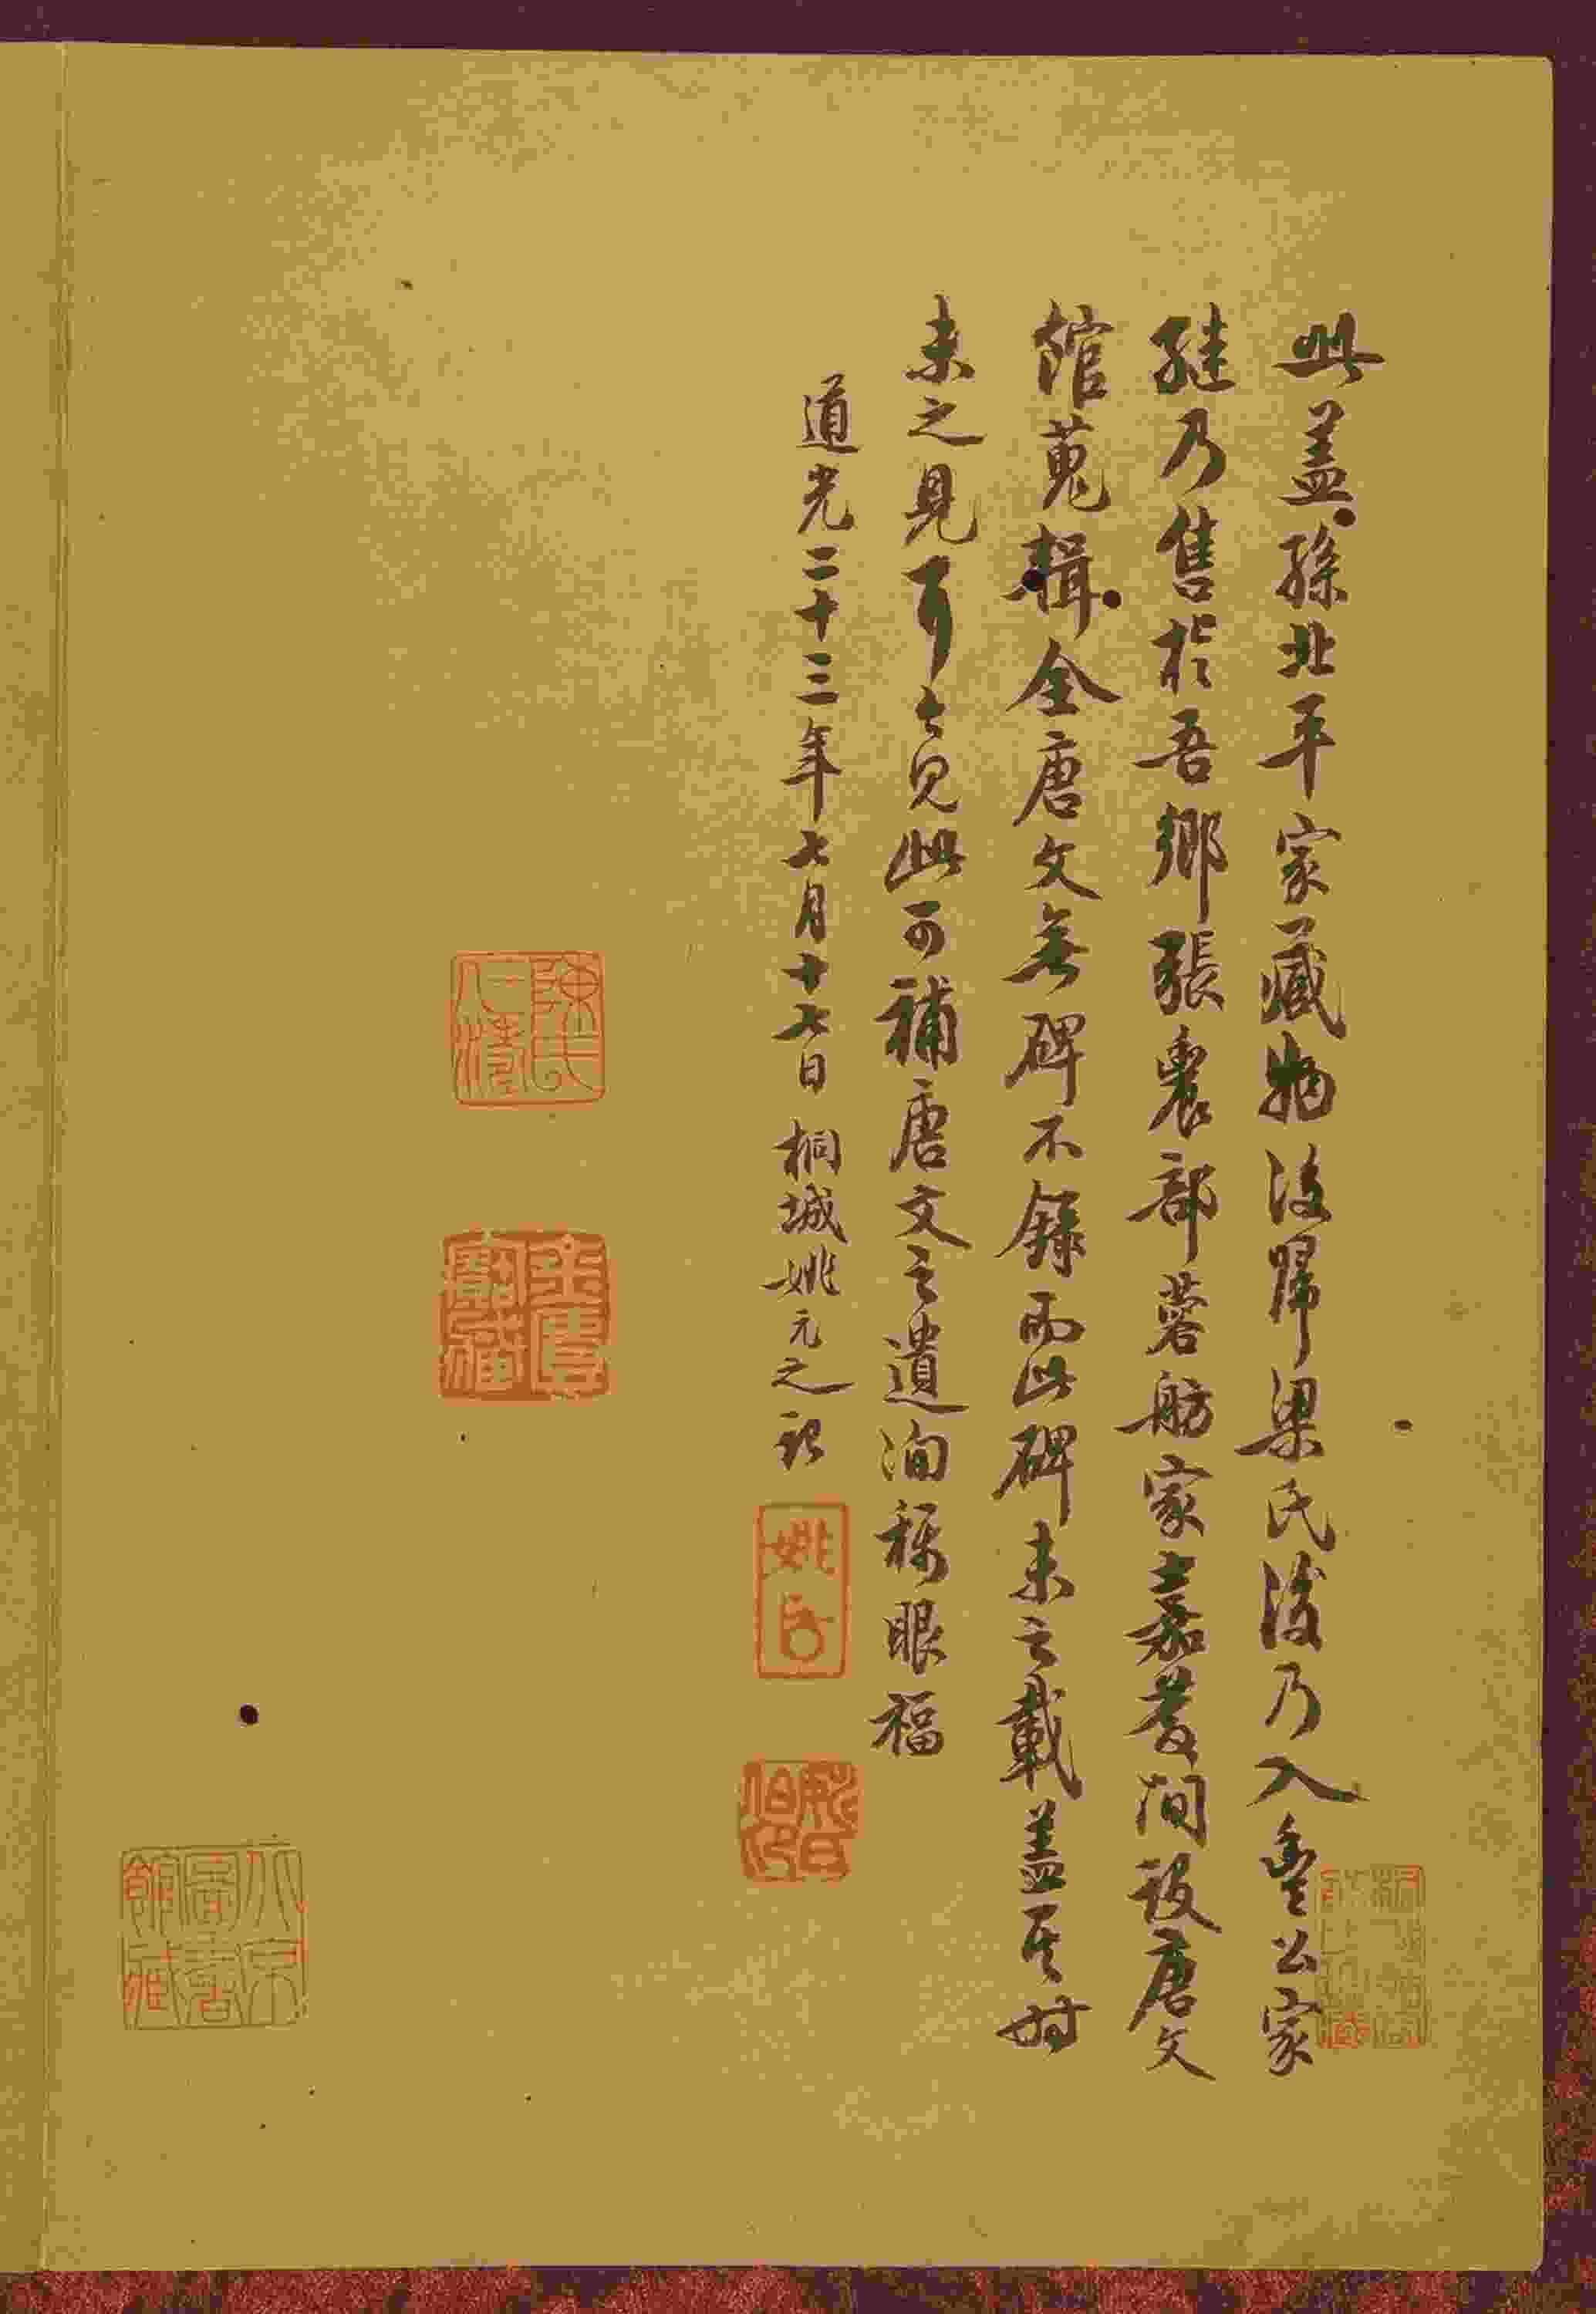 此蓋孫北平家藏物後歸梁氏後乃入豐公家
繼乃售於吾鄉張農部蓉舫家嘉慶間設唐文
館蒐輯全唐文無碑不錄而此碑未之載蓋其時
未之見耳今見此可補唐文之遺洵稱眼福
道光二十三年七月十七日 桐城姚元之記
姚 元之
伯昂
陳氏仁濤
金匱寶藏
八宗圖書館藏